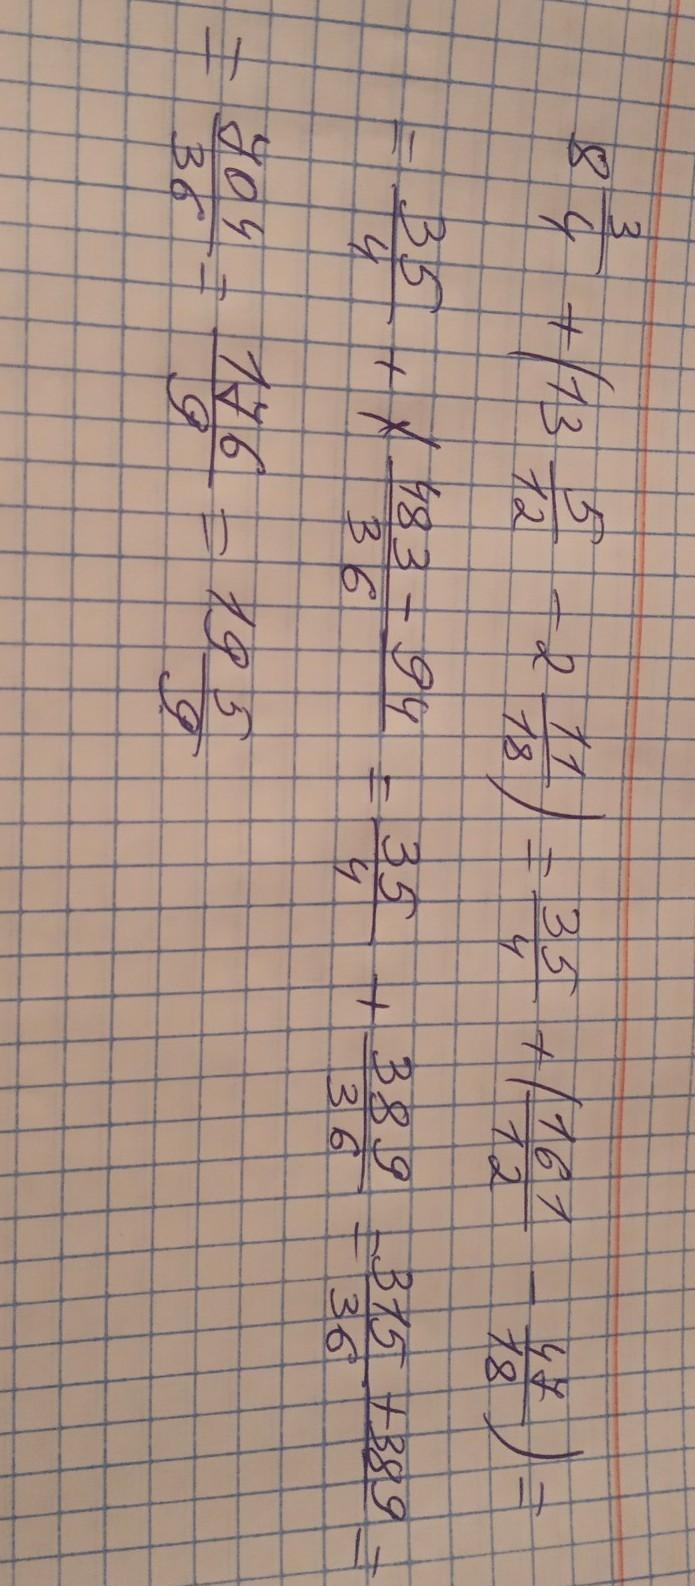 8 3/4 + (13 5/12 - 2 11/18) = 35/4 + (161/12 - 47/18) =
= 35/4 + (483 - 94)/36 = 35/4 + 389/36 = (315 + 389)/36 =
= 704/36 = 176/9 = 19 5/9